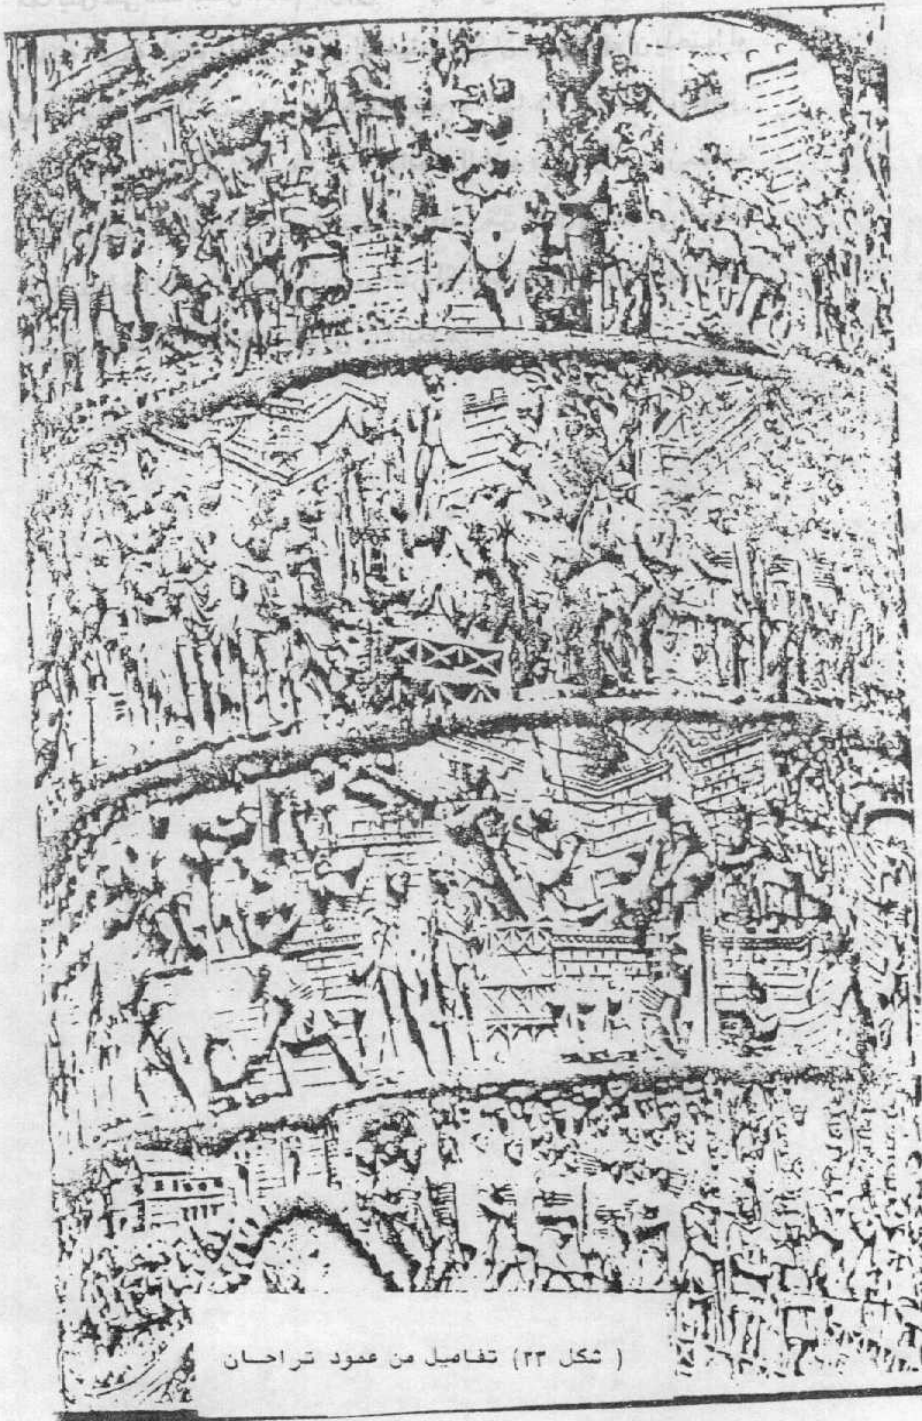 ( شكل ٢٣) تفاصيل من عمود تراجان